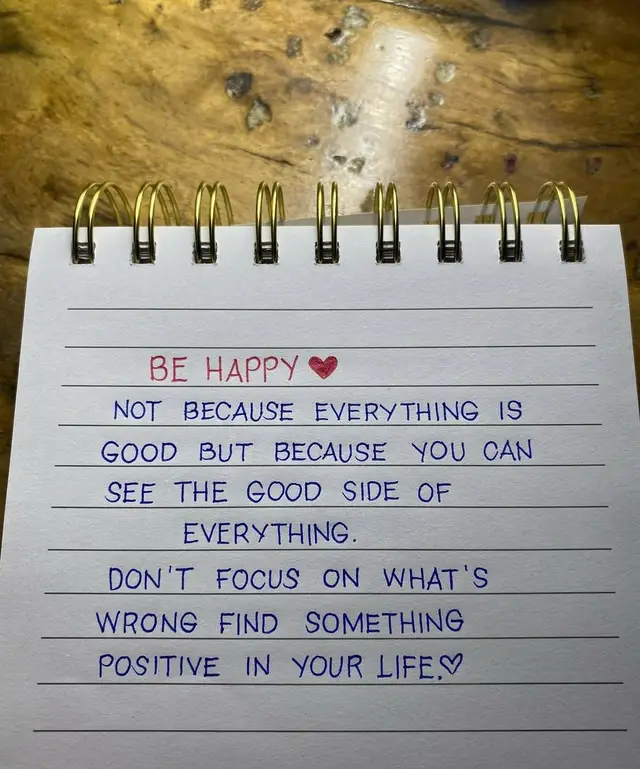 BE HAPPY ❤
NOT BECAUSE EVERYTHING IS
GOOD BUT BECAUSE YOU CAN
SEE THE GOOD SIDE OF
EVERYTHING.
DON'T FOCUS ON WHAT'S
WRONG FIND SOMETHING
POSITIVE IN YOUR LIFE.♡